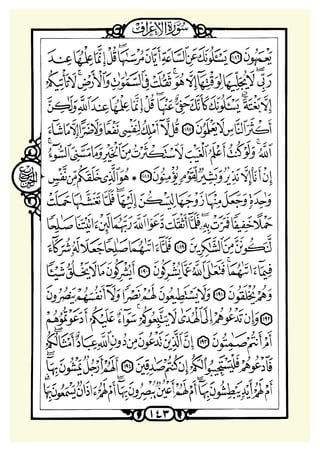 سُورَةُ الْأَعْرَافِ
يَعْمَهُونَ ١٨٦ يَسْـَٔلُونَكَ عَنِ السَّاعَةِ أَيَّانَ مُرْسَىٰهَا قُلْ إِنَّمَا عِلْمُهَا عِندَ
رَبِّي لَا يُجَلِّيهَا لِوَقْتِهَا إِلَّا هُوَ ثَقُلَتْ فِي السَّمَٰوَٰتِ وَالْأَرْضِ لَا تَأْتِيكُمْ
إِلَّا بَغْتَةً يَسْـَٔلُونَكَ كَأَنَّكَ حَفِيٌّ عَنْهَا قُلْ إِنَّمَا عِلْمُهَا عِندَ اللَّهِ وَلَٰكِنَّ
أَكْثَرَ النَّاسِ لَا يَعْلَمُونَ ١٨٧ قُل لَّا أَمْلِكُ لِنَفْسِي نَفْعًا وَلَا ضَرًّا إِلَّا مَا شَاءَ
اللَّهُ وَلَوْ كُنتُ أَعْلَمُ الْغَيْبَ لَاسْتَكْثَرْتُ مِنَ الْخَيْرِ وَمَا مَسَّنِيَ السُّوءُ
إِنْ أَنَا إِلَّا نَذِيرٌ وَبَشِيرٌ لِّقَوْمٍ يُؤْمِنُونَ ١٨٨ * هُوَ الَّذِي خَلَقَكُم مِّن نَّفْسٍ
وَٰحِدَةٍ وَجَعَلَ مِنْهَا زَوْجَهَا لِيَسْكُنَ إِلَيْهَا فَلَمَّا تَغَشَّىٰهَا حَمَلَتْ
حَمْلًا خَفِيفًا فَمَرَّتْ بِهِ فَلَمَّا أَثْقَلَت دَّعَوَا اللَّهَ رَبَّهُمَا لَئِنْ ءَاتَيْتَنَا صَٰلِحًا
لَّنَكُونَنَّ مِنَ الشَّٰكِرِينَ ١٨٩ فَلَمَّا ءَاتَىٰهُمَا صَٰلِحًا جَعَلَا لَهُ شُرَكَاءَ
فِيمَا ءَاتَىٰهُمَا فَتَعَٰلَى اللَّهُ عَمَّا يُشْرِكُونَ ١٩٠ أَيُشْرِكُونَ مَا لَا يَخْلُقُ شَيْـًٔا
وَهُمْ يُخْلَقُونَ ١٩١ وَلَا يَسْتَطِيعُونَ لَهُمْ نَصْرًا وَلَا أَنفُسَهُمْ يَنصُرُونَ
١٩٢ وَإِن تَدْعُوهُمْ إِلَى الْهُدَىٰ لَا يَتَّبِعُوكُمْ سَوَاءٌ عَلَيْكُمْ أَدَعَوْتُمُوهُمْ
أَمْ أَنتُمْ صَٰمِتُونَ ١٩٣ إِنَّ الَّذِينَ تَدْعُونَ مِن دُونِ اللَّهِ عِبَادٌ أَمْثَالُكُمْ
فَادْعُوهُمْ فَلْيَسْتَجِيبُوا لَكُمْ إِن كُنتُمْ صَٰدِقِينَ ١٩٤ أَلَهُمْ أَرْجُلٌ يَمْشُونَ بِهَا
أَمْ لَهُمْ أَيْدٍ يَبْطِشُونَ بِهَا أَمْ لَهُمْ أَعْيُنٌ يُبْصِرُونَ بِهَا أَمْ لَهُمْ ءَاذَانٌ يَسْمَعُونَ بِهَا
١٤٣